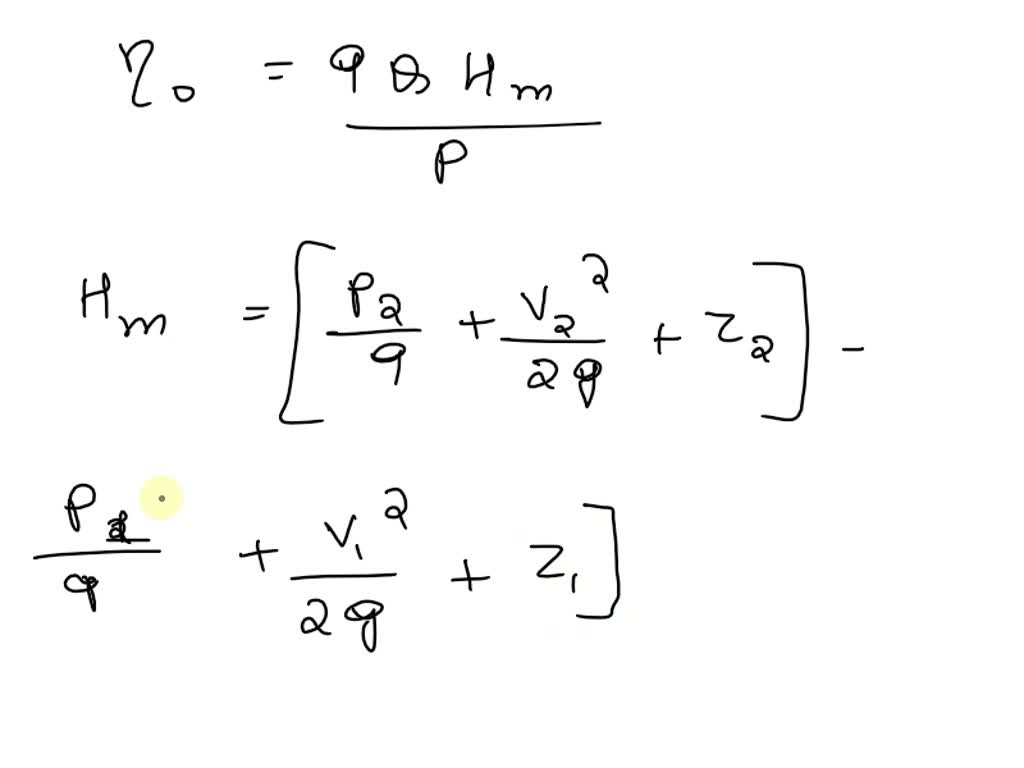 η₀ = 9 Q Hm / P
Hm = [ P2 / 9 + V2² / 2g + Z2 ] -
P1 / 9 + V1² / 2g + Z1 ]